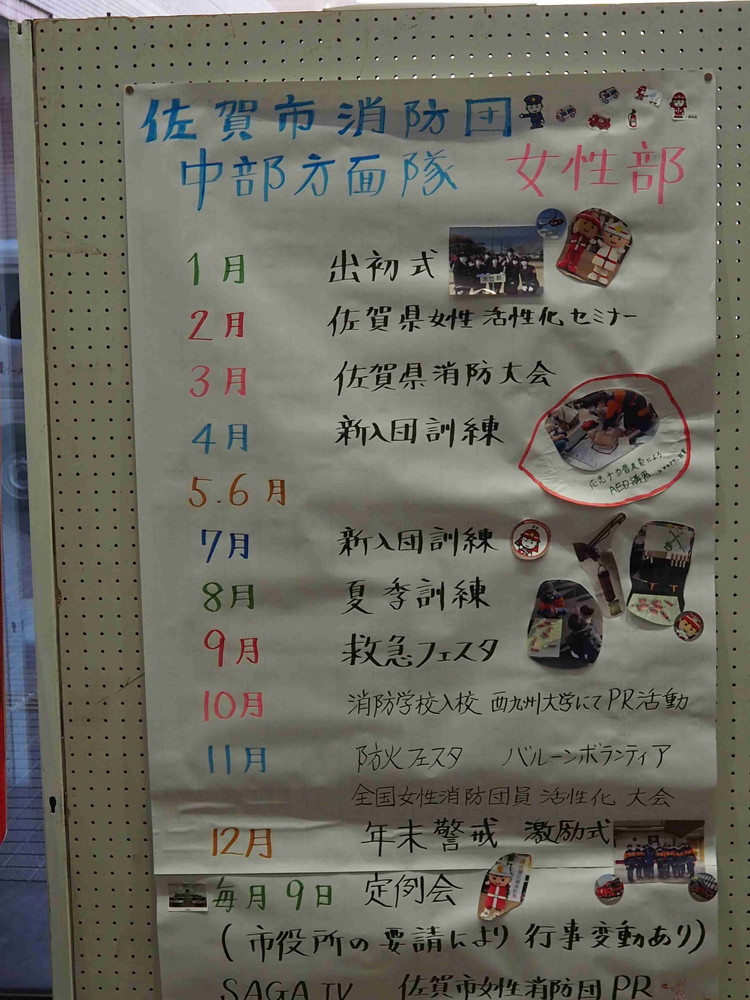 佐賀市消防団
中部方面隊 女性部
1月 出初式
2月 佐賀県女性活性化セミナー
3月 佐賀県消防大会
4月 新入団訓練
AED講習
5.6月
7月 新入団訓練
8月 夏季訓練
9月 救急フェスタ
10月 消防学校入校 西九州大学にてPR活動
11月 防火フェスタ バルーンボランティア
全国女性消防団員 活性化 大会
12月 年末警戒 激励式
毎月9日 定例会
(市役所の要請により 行事変動あり)
SAGA TV 佐賀市女性消防団PR